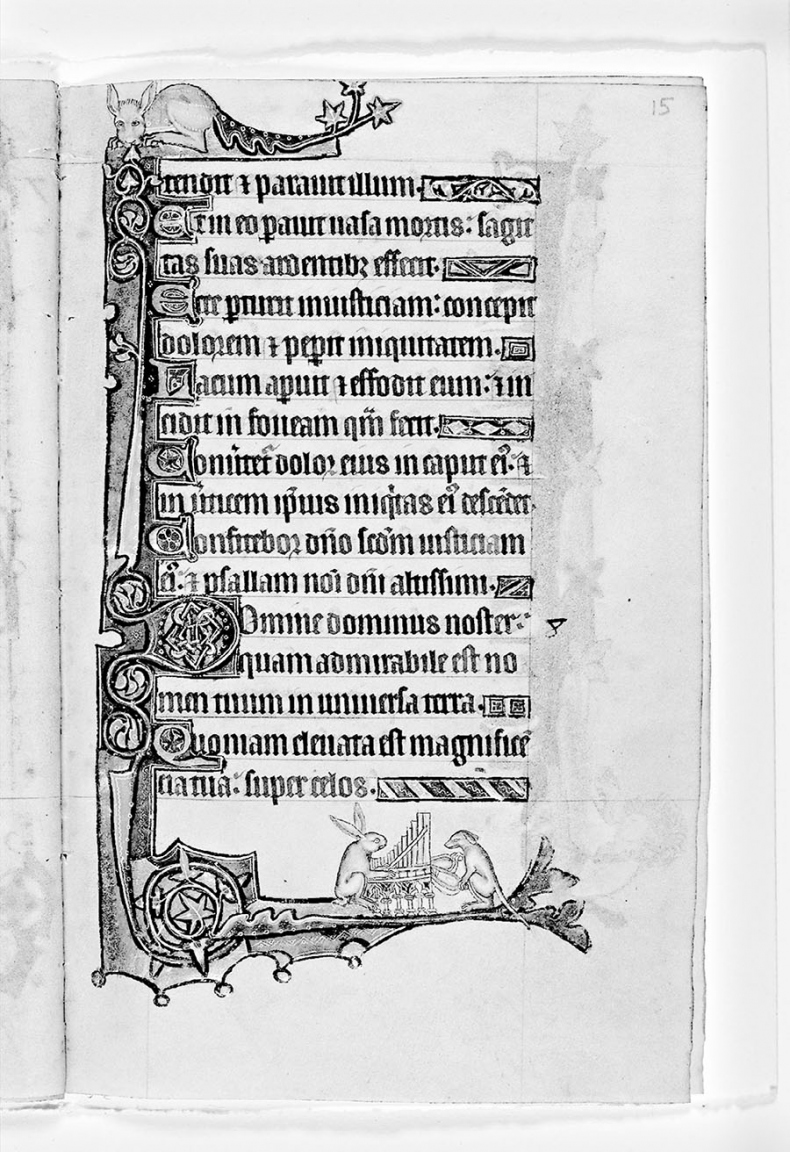 15
tendit ⁊ parauit illum.
Et in eo pauit uasa mortis: sagit
tas suas ardentibꝫ effecit.
Ecce ꝑturiit iniusticiam: concepit
dolorem ⁊ peꝑit iniquitatem.
Lacum aꝑuit ⁊ effodit eum: ⁊ in
cidit in foueam qm̄ fecit.
Conũtet᷑ dolor eius in caput eiꝰ. ⁊
in ũticem ip̄ius iniqͥtas eiꝰ descẽdet.
Confitebor dño scd̄m iusticiam
eiꝰ. ⁊ psallam noĩ dñi altissimi.
Domine dominus noster:
quam admirabile est no
men tuum in uniuersa terra.
Quoniam eleuata est magnificẽ
cia tua: super celos.